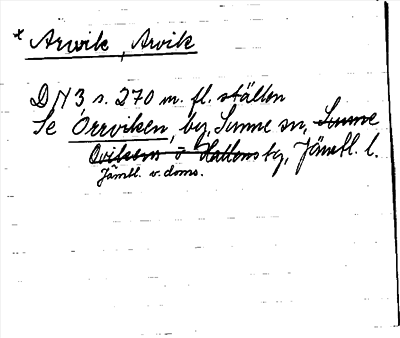 * Arwik, Arvik
DN 3 s. 270 m. fl. ställen
Se Örrviken, by, Sunne sn, Sunne
Ovikens o Hallens tg, Jämtl. l.
Jämtl. v. doms.